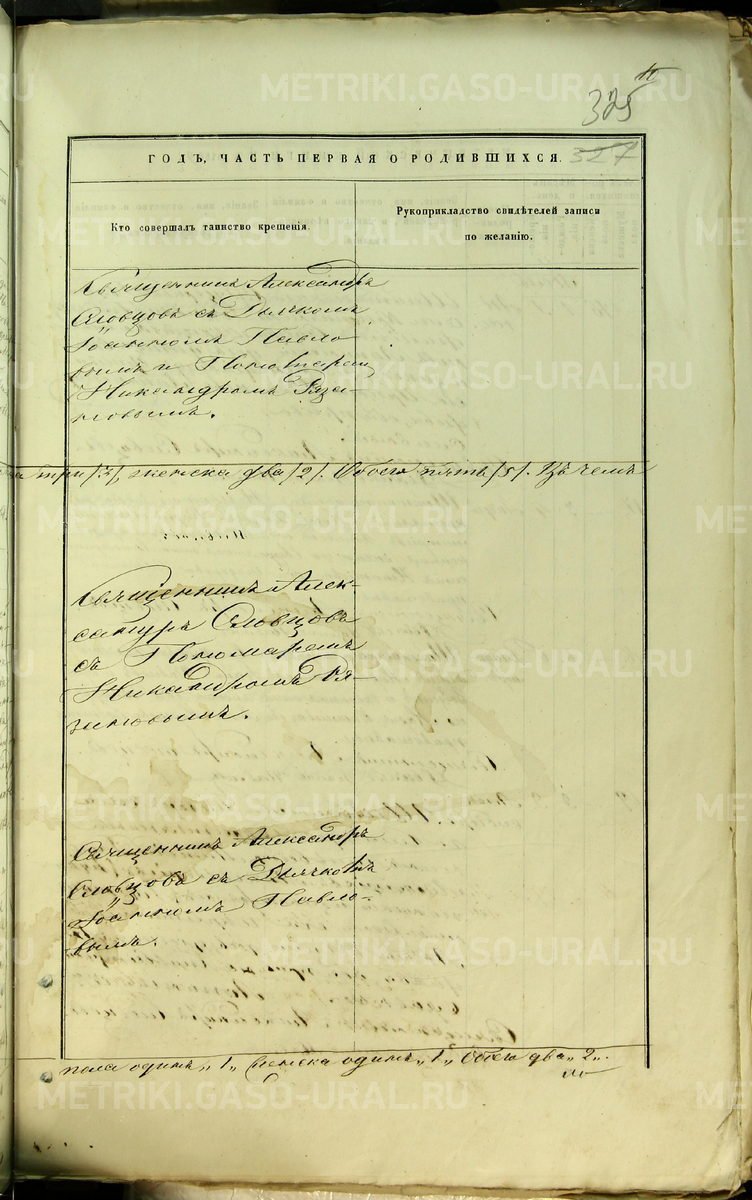 METRIKI.GASO-URAL.RU
325
327
ГОДЪ, ЧАСТЬ ПЕРВАЯ О РОДИВШИХСЯ.
Кто совершалъ таинство крещенія.
Рукоприкладство свидѣтелей записи
по желанію.
Священникъ Александръ
Словцовъ съ Дьячкомъ
Іоанномъ Павло
вымъ и Пономаремъ
Никандромъ Ряза-
новымъ.
три /3/, женска два /2/. Обоего пять /5/. Въ чемъ
Священникъ Алек-
сандръ Словцовъ
съ Пономаремъ
Никандромъ Ря-
зановымъ.
Священникъ Александръ
Словцовъ съ Дьячкомъ
Іоанномъ Павло-
вымъ.
пола одинъ „1„ женска одинъ „1„ Обоего два „2„.